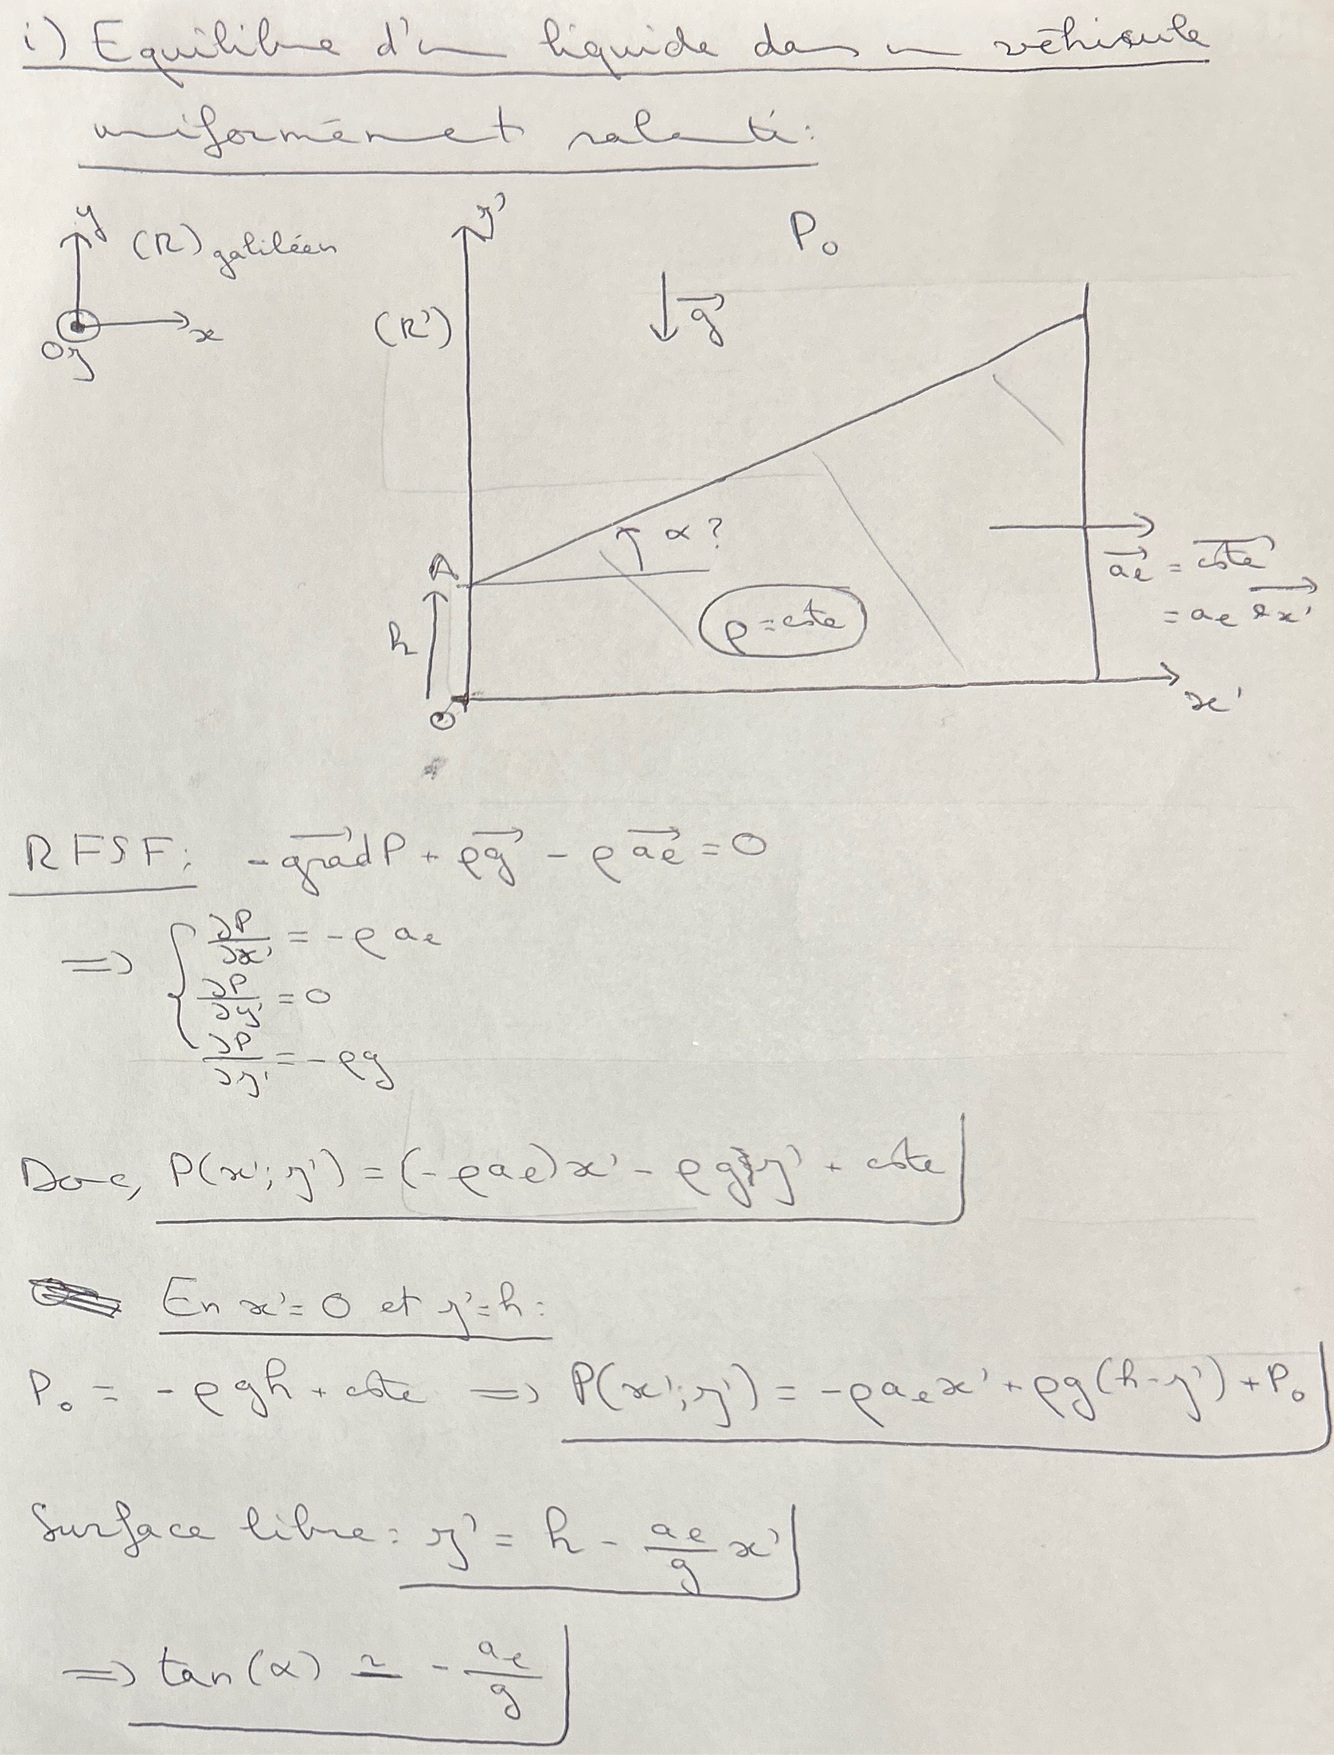 i) Equilibre d'un liquide dans un véhicule
uniformément ralenti:
y
(R) galiléen
x
Oz
z'
P₀
(R')
g⃗
A
α?
h
ρ = cste
a⃗e = cste⃗
= ae e⃗x'
O
x'
RFSF: -grad⃗ P + ρg⃗ - ρa⃗e = 0
=> { ∂P/∂x' = -ρ ae
∂P/∂y' = 0
∂P/∂z' = -ρg
Donc, P(x'; z') = (-ρae)x' - ρg z' + cste
En x'=0 et z'=h:
P₀ = -ρgh + cste => P(x'; z') = -ρaex' + ρg(h-z') + P₀
Surface libre: z' = h - ae/g x'
=> tan(α) = - ae/g